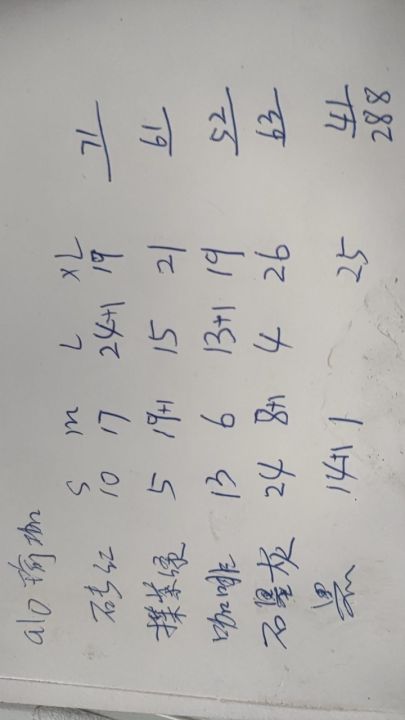 alo 瑜珈
S M L XL
砖红 10 17 24+1 19 71
抹茶绿 5 19+1 15 21 61
咖啡 13 6 13+1 19 52
石墨灰 24 8+1 4 26 63
黑 14+1 1 25 41
288